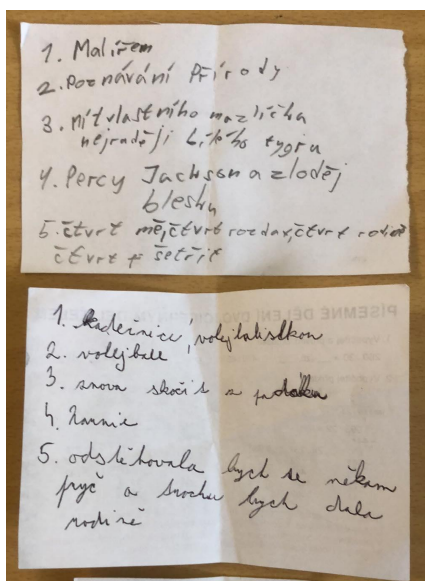 1. Malířem
2. Poznávání Přírody
3. Mít vlastního mazlíčka
nejraději bílého tygru
4. Percy Jackson a zloděj
blesku
5. čtvrt mě, čtvrt rozdav, čtvrt
čtvrt šetřit
PÍSEMNÉ DĚLENÍ
1. kadernicí, volejbalistkou
2. volejbal
3. znova skočit z padáku
4.
5. odstěhovala bych se někam
pryč a trochu bych dala
rodině